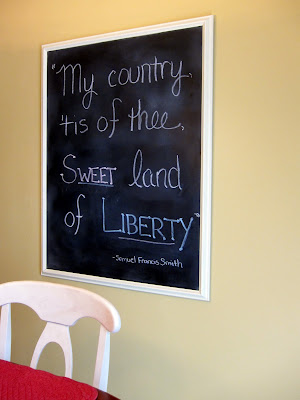 "My country,
'tis of thee,
SWEET land
of LIBERTY"
-Samuel Francis Smith